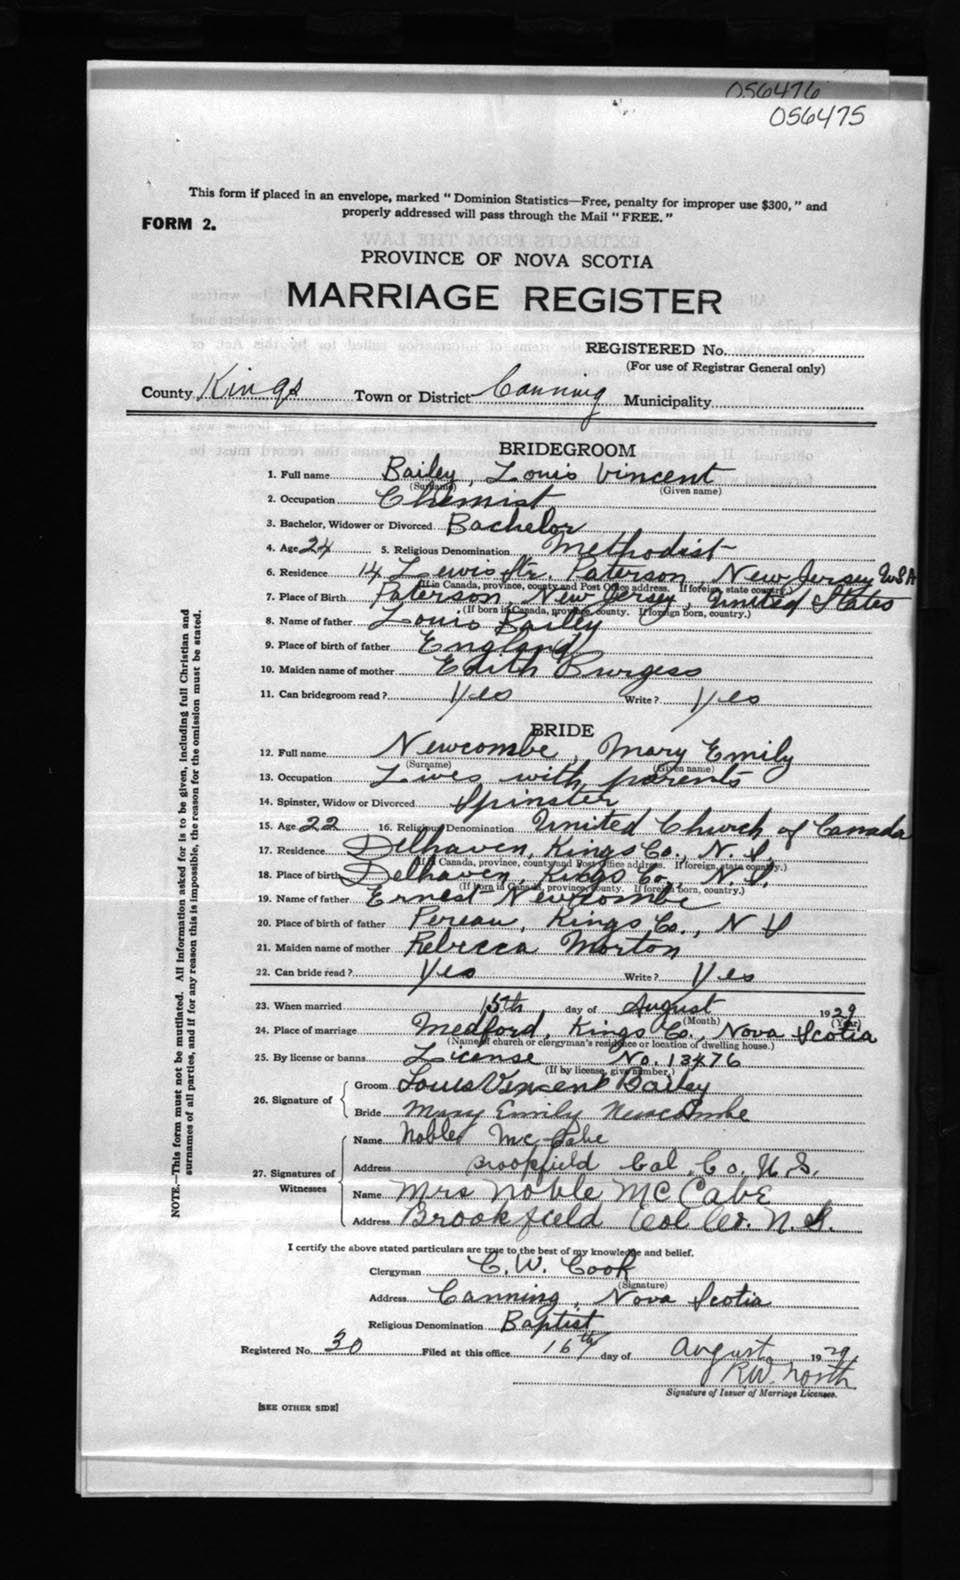 056476
056475
This form if placed in an envelope, marked "Dominion Statistics—Free, penalty for improper use $300," and
properly addressed will pass through the Mail "FREE."
FORM 2.
PROVINCE OF NOVA SCOTIA
MARRIAGE REGISTER
REGISTERED No.
(For use of Registrar General only)
County Kings Town or District Canning Municipality
BRIDEGROOM
1. Full name Bailey, Louis Vincent
(Surname) (Given name)
2. Occupation Chemist
3. Bachelor, Widower or Divorced Bachelor
4. Age 24 5. Religious Denomination Methodist
6. Residence 14 Lewis Str. Paterson, New Jersey USA
(If in Canada, province, county and Post Office address. If foreign, state country.)
7. Place of Birth Paterson, New Jersey, United States
(If born in Canada, province, county. If foreign born, country.)
8. Name of father Louis Bailey
9. Place of birth of father England
10. Maiden name of mother Edith Burgess
11. Can bridegroom read? Yes Write? Yes
BRIDE
12. Full name Newcombe, Mary Emily
(Surname) (Given name)
13. Occupation Lives with parents
14. Spinster, Widow or Divorced Spinster
15. Age 22 16. Religious Denomination United Church of Canada
17. Residence Delhaven, Kings Co., N. S.
(If in Canada, province, county and Post Office address. If foreign, state country.)
18. Place of birth Delhaven, Kings Co., N. S.
(If born in Canada, province, county. If foreign born, country.)
19. Name of father Ernest Newcombe
20. Place of birth of father Pereau, Kings Co., N S
21. Maiden name of mother Rebecca Morton
22. Can bride read? Yes Write? Yes
23. When married 15th day of August 1929
(Month) (Year)
24. Place of marriage Medford, Kings Co., Nova Scotia
(Name of church or clergyman's residence or location of dwelling house.)
25. By license or banns License No. 13476
(If by license, give number.)
26. Signature of Groom Louis Vincent Bailey
Bride Mary Emily Newcombe
27. Signatures of Witnesses Name Noble McCabe
Address Brookfield Col. Co. N.S.
Name Mrs Noble McCabe
Address Brookfield Col Co. N.S.
I certify the above stated particulars are true to the best of my knowledge and belief.
Clergyman C. W. Cook
(Signature)
Address Canning, Nova Scotia
Religious Denomination Baptist
Registered No. 30 Filed at this office 16th day of August 1929
R.W. North
Signature of Issuer of Marriage Licenses.
[SEE OTHER SIDE]
NOTE.—This form must not be mutilated. All information asked for is to be given, including full Christian and
surnames of all parties, and if for any reason this is impossible, the reason for the omission must be stated.